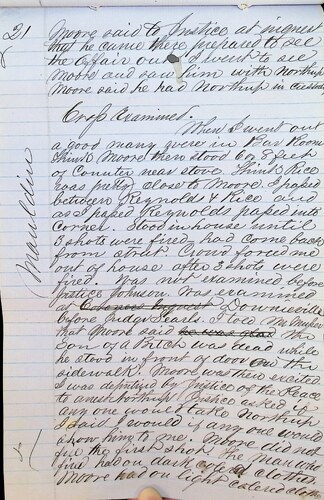 21
Moore said to Justice at inquest
that he came there prepared to see
the affair out I went to see
Moore and saw him with Northup
Moore said he had Northup in custody
Cross Examined.
When I went out
a good many were in Bar Room
think Moore then stood 6 or 8 feet
of Counter near stove. Think Rice
was pretty close to Moore. I passed
between Reynolds & Rice and
as I passed Reynolds passed into
corner. Stood in house until
3 shots were fired had come back
from street. Crowd forced me
out of house after 3 shots were
fired. Was not examined before
Justice Johnson was examined
Downieville
before Judge Searls. I told
that Moore said he was glad the
Son of a Bitch was dead while
he stood in front of door on the
sidewalk. Moore was then excited
I was deputized by Justice of the Peace
to arrest Northup. Justice asked if
any one would take Northup
I said I would if any one would
show him to me. Moore did not
fire the first shot. The Man who
fired had on dark colored clothes.
Moore had on light colored clothes
Mauldin